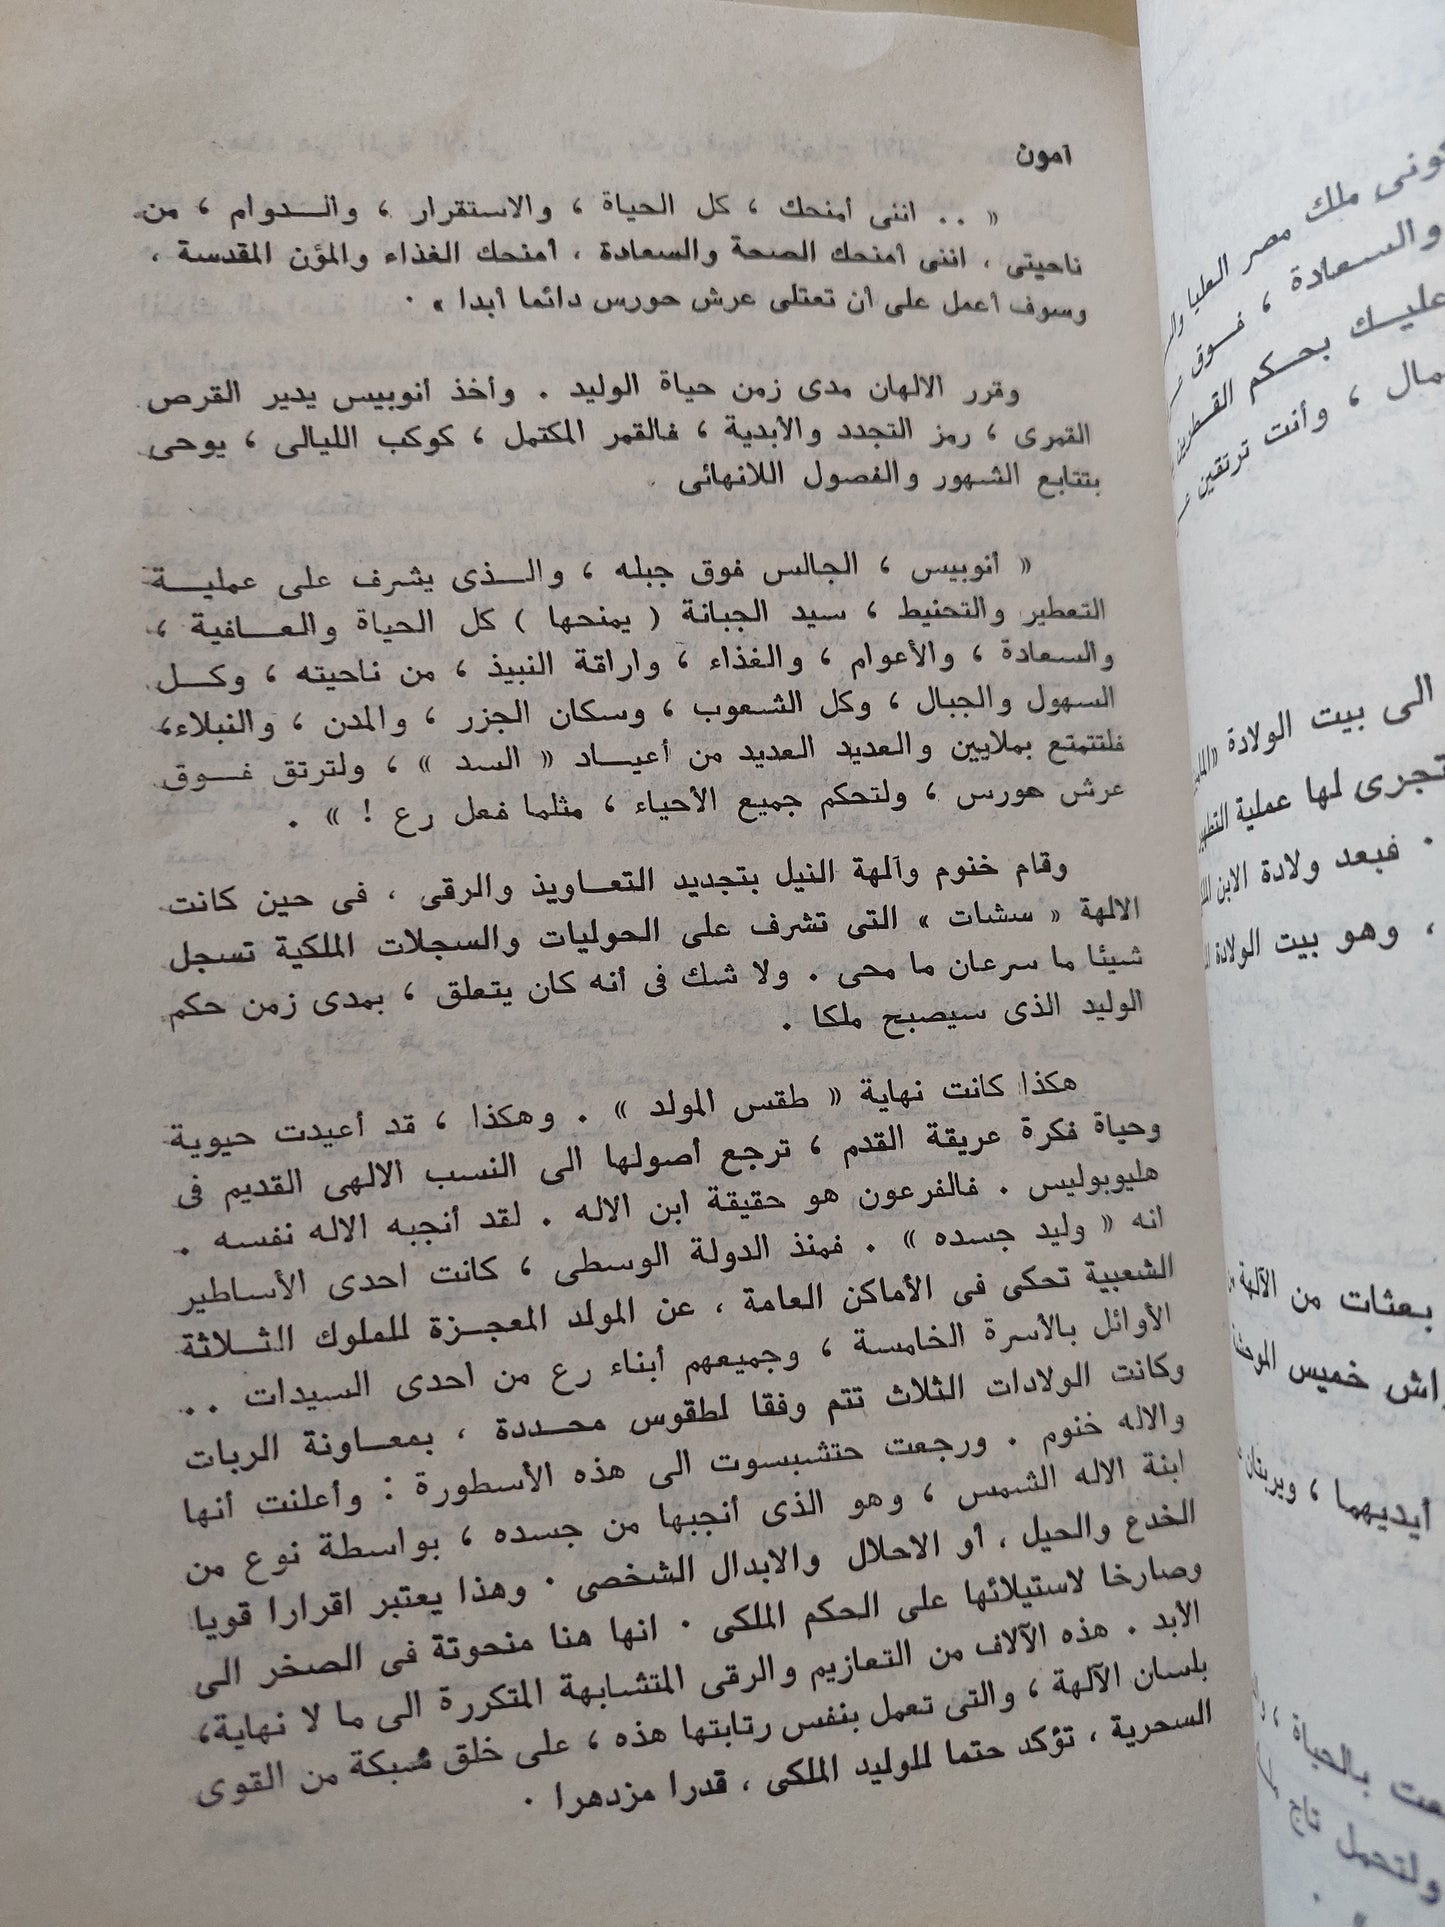 آمون
« . . اننى أمنحك ، كل الحياة ، والاستقرار ، والـــدوام ، من
ناحيتى ، اننى أمنحك الصحة والسعادة ، أمنحك الغذاء والمؤن المقدسة ،
وسوف أعمل على أن تعتلى عرش حورس دائما أبدا » .
وقرر الالهان مدى زمن حياة الوليد . وأخذ أنوبيس يدير القرص
القمرى ، رمز التجدد والأبدية ، فالقمر المكتمل ، كوكب الليالى ، يوحى
بتتابع الشهور والفصول اللانهائى .
« أنوبيس ، الجالس فوق جبله ، والـــذى يشرف على عمليـــة
التعطير والتحنيط ، سيد الجبانة ( يمنحها ) كل الحياة والعـــافية ،
والسعادة ، والأعوام ، والغذاء ، واراقة النبيذ ، من ناحيته ، وكـــل
السهول والجبال ، وكل الشعوب ، وسكان الجزر ، والمدن ، والنبلاء،
فلتتمتع بملايين والعديد العديد من أعيـــاد « السد » ، ولترتق فـــوق
عرش هورس ، ولتحكم جميع الأحياء ، مثلما فعل رع ! » .
وقام خنوم وآلهة النيل بتجديد التعـــاويذ والرقى ، فى حين كانت
الالهة « سشات » التى تشرف على الحوليات والسجلات الملكية تسجل
شيئا ما سرعان ما محى . ولا شك فى أنه كان يتعلق ، بمدى زمن حكم
الوليد الذى سيصبح ملكا .
هكذا كانت نهاية « طقس المولد » . وهكذا ، قد أعيدت حيوية
وحياة فكرة عريقة القدم ، ترجع أصولها الى النسب الالهى القديم فى
هليوبوليس . فالفرعون هو حقيقة ابن الاله . لقد أنجبه الاله نفسه .
انه « وليد جسده » . فمنذ الدولة الوسطى ، كانت احدى الأساطير
الشعبية تحكى فى الأماكن العامة ، عن المولد المعجـــزة للملوك الثـــلاثة
الأوائل بالأسرة الخامسة ، وجميعهم أبناء رع من احدى السيدات . .
وكانت الولادات الثلاث تتم وفقا لطقوس محـــددة ، بمعـــاونة الربات
والاله خنوم . ورجعت حتشبسوت الى هذه الأسطورة : وأعلنت أنها
ابنة الاله الشمس ، وهو الذى أنجبها من جسده ، بواسطة نوع من
الخدع والحيل ، أو الاحلال والابدال الشخصى . وهذا يعتبر اقرارا قويا
وصارخا لاستيلائها على الحكم الملكى . انها هنا منحوتة فى الصخر الى
الأبد . هذه الآلاف من التعازيم والرقى المتشابهة المتكررة الى ما لا نهاية،
بلسان الآلهة ، والتى تعمل بنفس رتابتها هذه ، على خلق شبكة من القوى
السحرية ، تؤكد حتما للوليد الملكى ، قدرا مزدهرا .
ملك مصر العليا
والسعادة ، فوق
عليك بحكم القطرين
، وأنت ترتقين
الى بيت الولادة
تجرى لها عملية التطهير
. فبعد ولادة الابن
، وهو بيت الولادة
بعثات من الآلهة
خميس
أيديهما ،
بالحياة ،
تاج